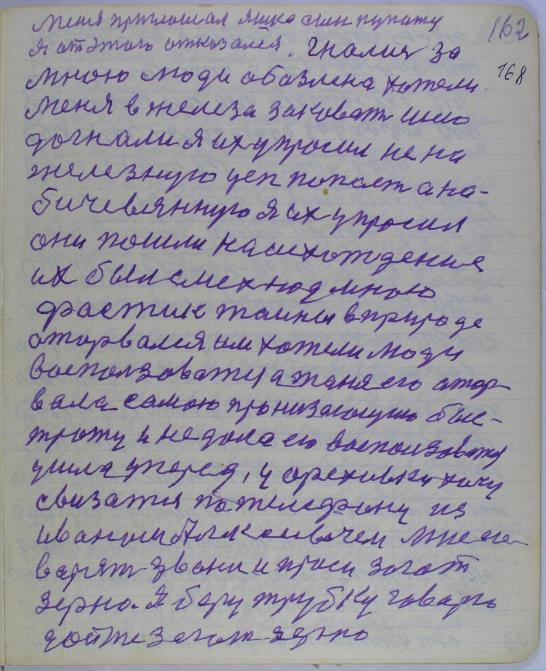 меня приглошал яшка
162
я от этого отказался. гналися за
168
мною люди хотели
меня в железа заковат
догнали я их упросил не на
железную цеп попаст а на-
бичевлянную я их упросил
они пошли на
их был смех надмною
тайны в природе
оторвался им хотели люди
воспользоватца а таня его отор-
вала самою пронизающую быс-
троту и недола ею воспользоватця
ушла уперед, у ореховки хочу
свизатся потелефону из
иваном мне га-
варят звони и проси загот
зерно. Я беру трубку говарю
дойте загот зерно